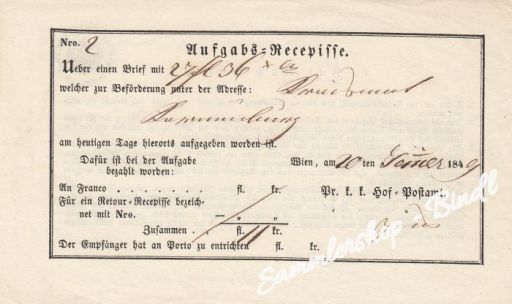 Nro. 2
Aufgabs-Recepisse.
Ueber einen Brief mit 27 fl 36 x
welcher zur Beförderung unter der Adresse:
am heutigen Tage hierorts aufgegeben worden ist.
Dafür ist bei der Aufgabe
bezahlt worden:
Wien, am 10 ten Jänner 1849
An Franco . . . . fl. kr.
Pr. k. k. Hof-Postamt.
Für ein Retour-Recepisse bezeich-
net mit Nro.
Zusammen . . fl. 11 kr.
Der Empfänger hat an Porto zu entrichten fl. kr.
Sammlershop - Bindl